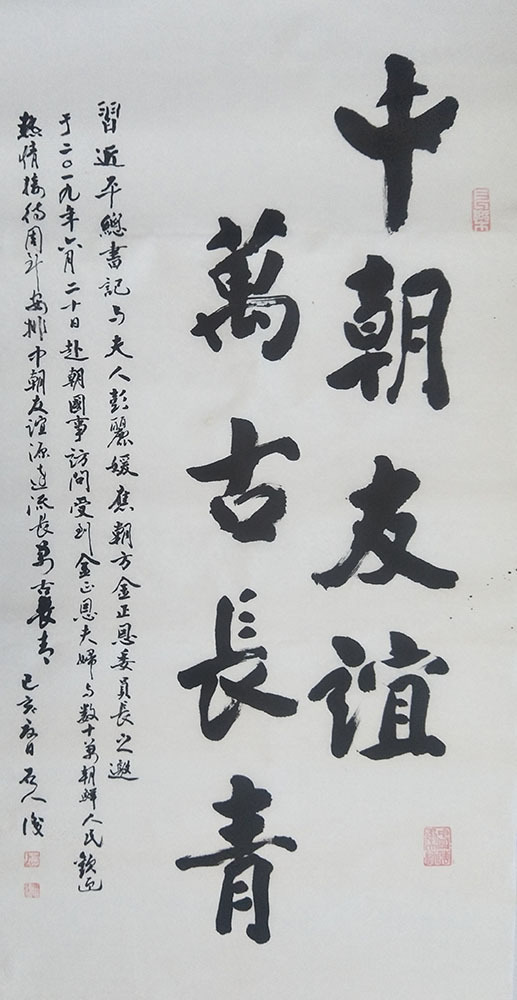 中朝友誼
萬古長青
習近平總書記与夫人彭麗媛應朝方金正恩委員長之邀
于二〇一九年六月二十日赴朝國事訪問受到金正恩夫婦与數十萬朝鮮人民歡迎
熱情接待周到安排中朝友誼源遠流長萬古長青
己亥夏日